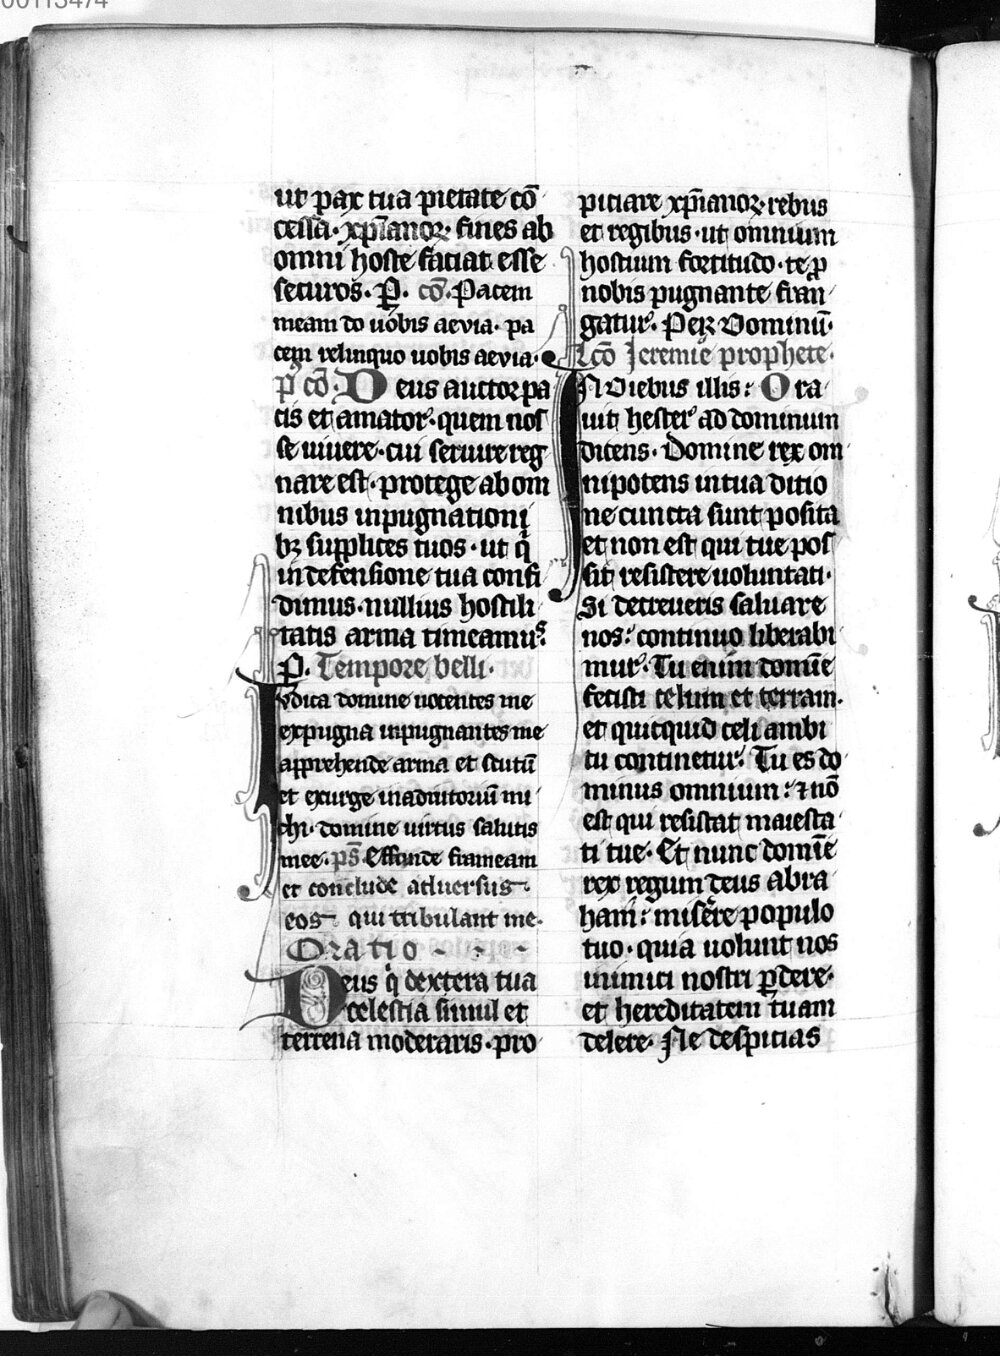 00113474
ut pax tua pietate cō
cessa· xp̄ianoꝝ· fines ab
omni hoste faciat esse
securos· P̱· cō· Pacem
meam do uobis aevia· pa
cem relinquo uobis aevia·
p̄ cō· Deus auctor pa
cis et amator· quem nos
se uiuere· cui seruire reg
nare est· protege ab om
nibus inpugnationi
bꝫ supplices tuos· ut q̇
in defensione tua confi
dimus· nullius hostili
tatis arma timeamus·
P̱· Tempore belli·
Iudica domine nocentes me
expugna inpugnantes me
apprehende arma et scutū
et exurge in adiutoriū mi
chi· domine uirtus salutis
mee· ps̄· Effunde frameam
et conclude aduersus
eos qui tribulant me·
Oratio
Deus q̇ dextera tua
celestia simul et
terrena moderaris· pro
piciare xp̄ianoꝝ· rebus
et regibus· ut omnium
hostium fortitudo· te ꝓ
nobis pugnante fran
gatur· Per Dominū·
Lcō Jeremie prophete·
IN Diebus illis: Ora
uit hester ad dominum
dicens· Domine rex om
nipotens in tua ditio
ne cuncta sunt posita
et non est qui tue pos
sit resistere uoluntati·
Si decreueris saluare
nos: continuo liberabi
mur· Tu enim domīe
fecisti celum et terram·
et quicquid celi ambi
tu continetur· Tu es do
minus omnium: ⁊ nō
est qui resistat maiesta
ti tue· Et nunc domīe
rex regum deus abra
ham: misēre populo
tuo· quia uolunt nos
inimici nostri ꝑdere·
et hereditatem tuam
delere· Ne despicias